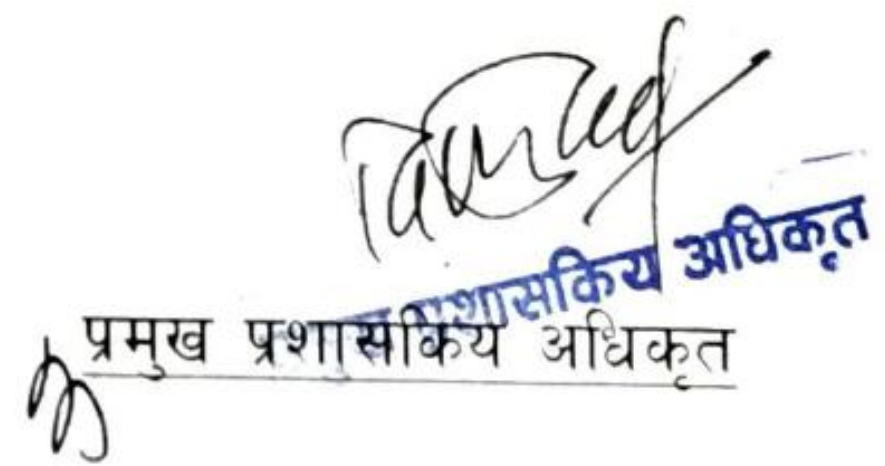 प्रशासकिय अधिकृत
प्रमुख प्रशासकिय अधिकृत